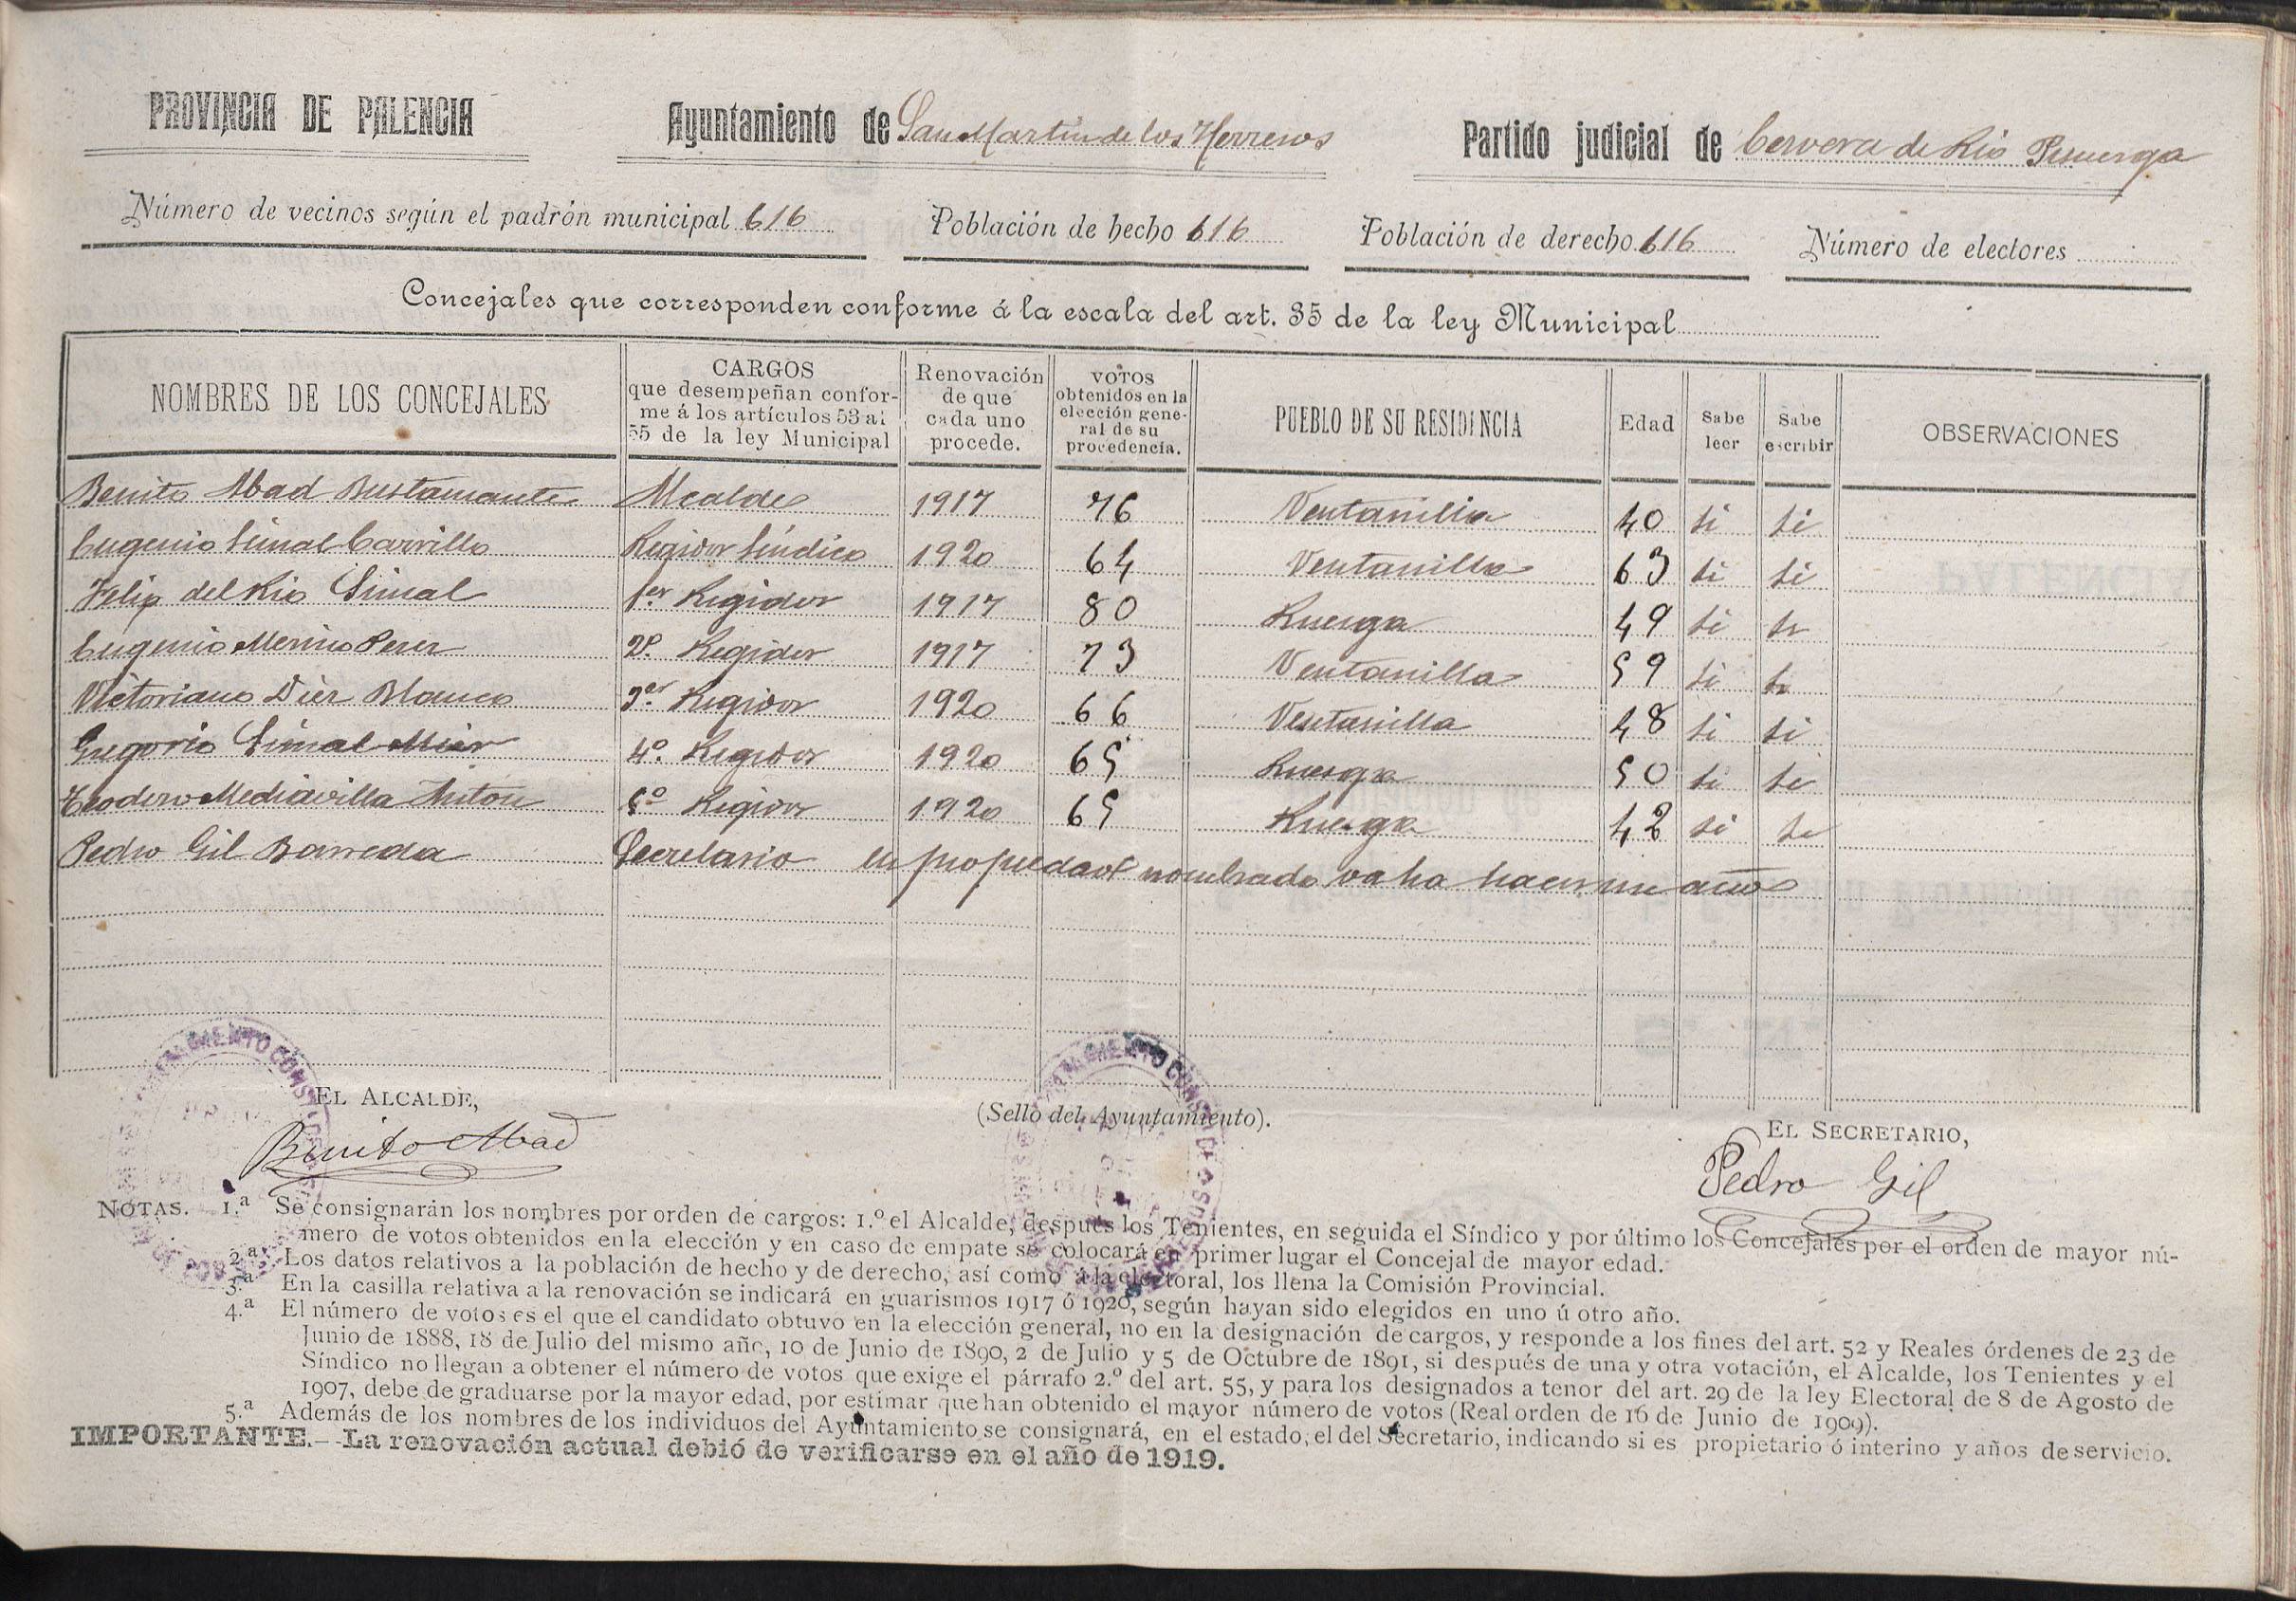 PROVINCIA DE PALENCIA
Ayuntamiento de San Martin de los Herreros
Partido judicial de Cervera de Rio Pisuerga
Número de vecinos según el padrón municipal 616
Población de hecho 616
Población de derecho 616
Número de electores
Concejales que corresponden conforme á la escala del art. 35 de la ley Municipal
NOMBRES DE LOS CONCEJALES
CARGOS
que desempeñan confor-
me á los artículos 53 al
55 de la ley Municipal
Renovación
de que
cada uno
procede.
VOTOS
obtenidos en la
elección gene-
ral de su
procedencia.
PUEBLO DE SU RESIDENCIA
Edad
Sabe
leer
Sabe
escribir
OBSERVACIONES
Benito Abad Bustamante Alcalde 1917 76 Ventanilla 40 si si
Eugenio Simal Carrillo Regidor Síndico 1920 64 Ventanilla 63 si si
Felix del Rio Simal 1er Regidor 1917 80 Ruesga 49 si si
Eugenio Merino Perez 2º Regidor 1917 73 Ventanilla 59 si si
Victoriano Diez Blanco 3er Regidor 1920 66 Ventanilla 48 si si
Gregorio Simal Mier 4º Regidor 1920 65 Ruesga 50 si si
Teodoro Mediavilla Antón 5º Regidor 1920 65 Ruesga 42 si si
Pedro Gil Barreda Secretario en propiedad nombrado va ha hacer años
EL ALCALDE,
Benito Abad
(Sello del Ayuntamiento).
EL SECRETARIO,
Pedro Gil
NOTAS. 1.ª Se consignarán los nombres por orden de cargos: 1.º el Alcalde, después los Tenientes, en seguida el Síndico y por último los Concejales por el orden de mayor nú-
mero de votos obtenidos en la elección y en caso de empate se colocará en primer lugar el Concejal de mayor edad.
2.ª Los datos relativos a la población de hecho y de derecho, así como á la electoral, los llena la Comisión Provincial.
3.ª En la casilla relativa a la renovación se indicará en guarismos 1917 ó 1920, según hayan sido elegidos en uno ú otro año.
4.ª El número de votos es el que el candidato obtuvo en la elección general, no en la designación de cargos, y responde a los fines del art. 52 y Reales órdenes de 23 de
Junio de 1888, 18 de Julio del mismo año, 10 de Junio de 1890, 2 de Julio y 5 de Octubre de 1891, si después de una y otra votación, el Alcalde, los Tenientes y el
Síndico no llegan a obtener el número de votos que exige el párrafo 2.º del art. 55, y para los designados a tenor del art. 29 de la ley Electoral de 8 de Agosto de
1907, debe de graduarse por la mayor edad, por estimar que han obtenido el mayor número de votos (Real orden de 16 de Junio de 1909).
5.ª Además de los nombres de los individuos del Ayuntamiento se consignará, en el estado, el del Secretario, indicando si es propietario ó interino y años de servicio.
IMPORTANTE.—La renovación actual debió de verificarse en el año de 1919.